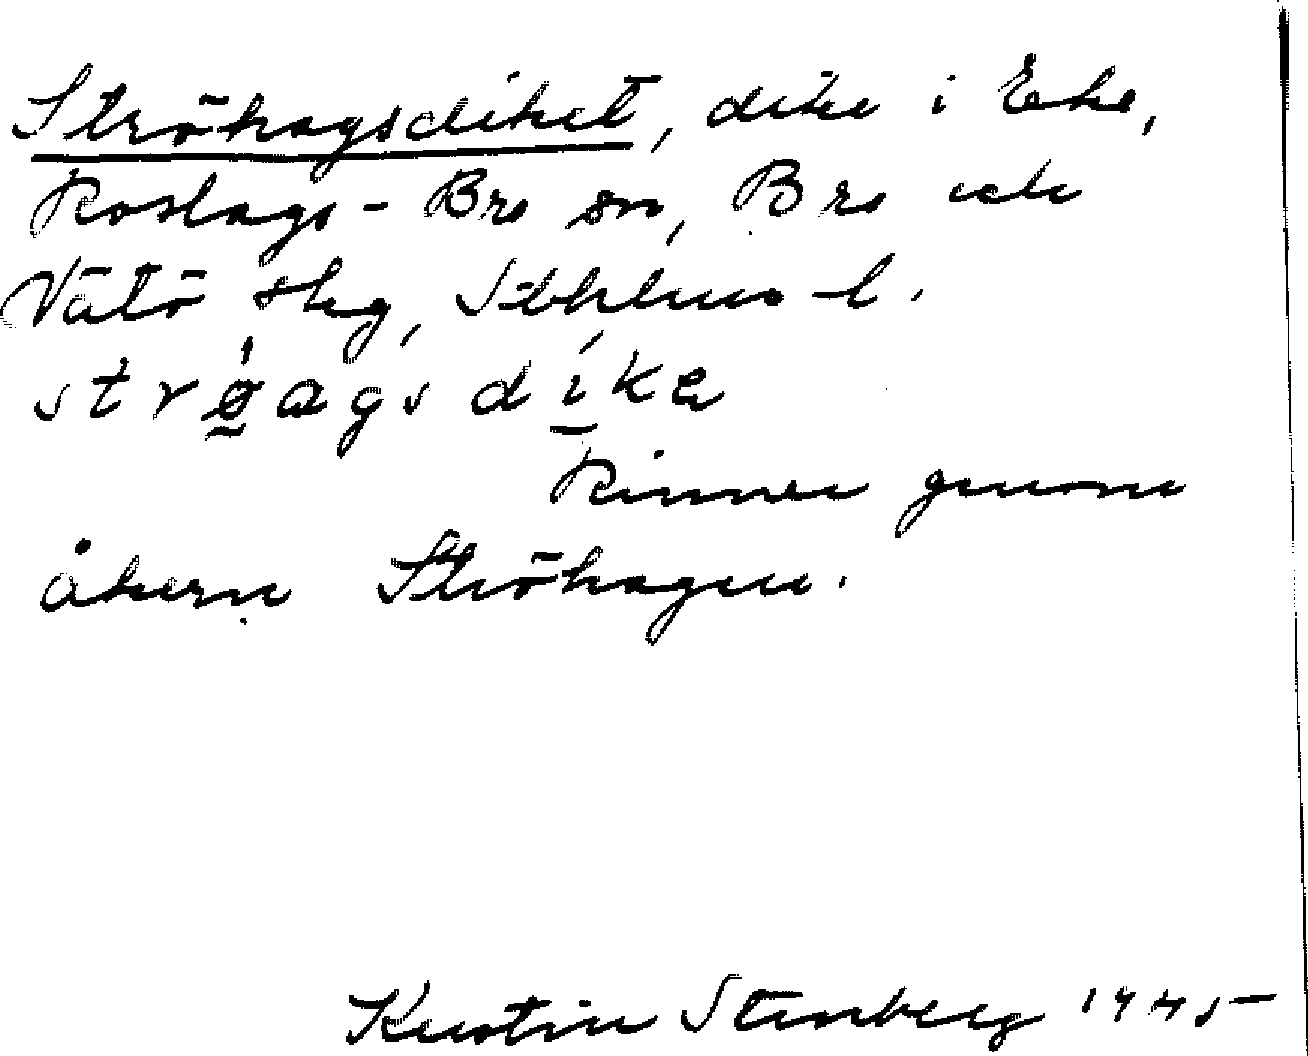 Ströhagsdiket, dike i Eke,
Roslags-Bro sn, Bro och
Vätö skg, Sthlms l.
strø̀agsdíka
Rinner genom
åkern Ströhagen.
Kerstin Stenberg 1945